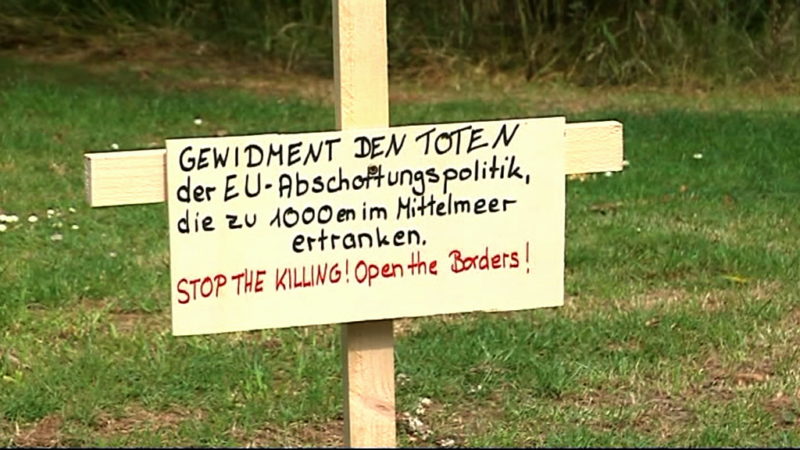 GEWIDMENT DEN TOTEN
der EU-Abschottungspolitik,
die zu 1000en im Mittelmeer
ertranken.
STOP THE KILLING! Open the Borders!